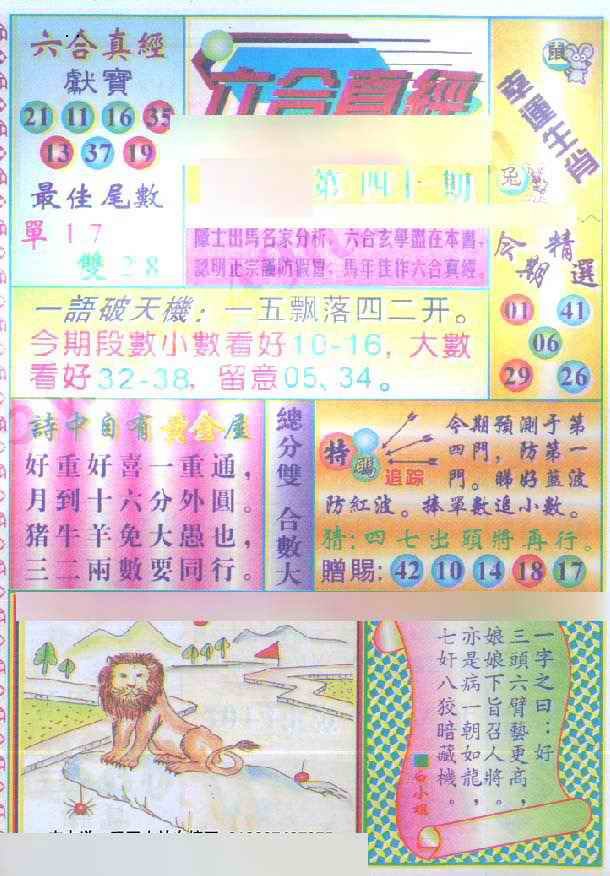 六合真經
獻寶
21 11 16 35
13 37 19
最佳尾數
單17
雙28
六合真經
隱士出馬名家分析，六合玄學盡在本書，
認明正宗謹防假冒，馬年佳作六合真經。
鼠
幸運生肖
兔
今期精選
01 41
06
29 26
一語破天機：一五飘落四二开。
今期段數小數看好10-16，大數
看好32-38，留意05、34。
詩中自有黃金屋
好重好喜一重通，
月到十六分外圓。
猪牛羊兔大愚也，
三二兩數要同行。
總分雙 合數大
特碼
追踪
今期預測于第
四門，防第一
門。睇好藍波
防紅波。捧單數追小數。
猜：四七出頭將再行。
贈賜：42 10 14 18 17
一字之曰：好，
三頭六臂藝更高，
娘娘下旨召人將。
亦是病一朝如龍，
七奸八狡暗藏機。
白小姐